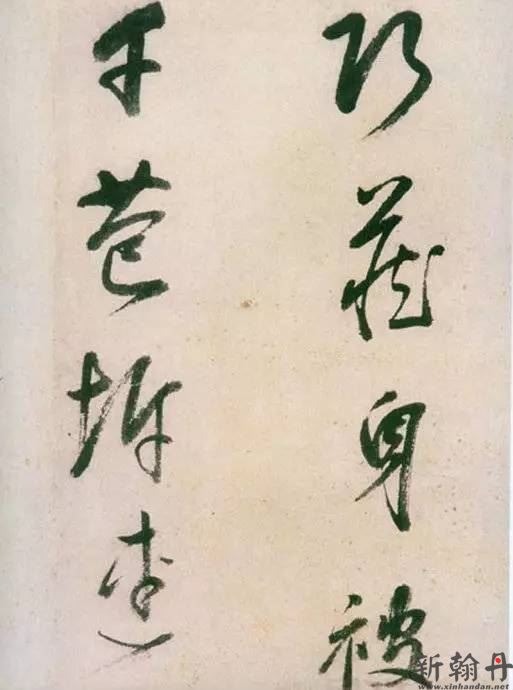 巧藏身被
苞坼
新翰丹
www.xinhandan.net